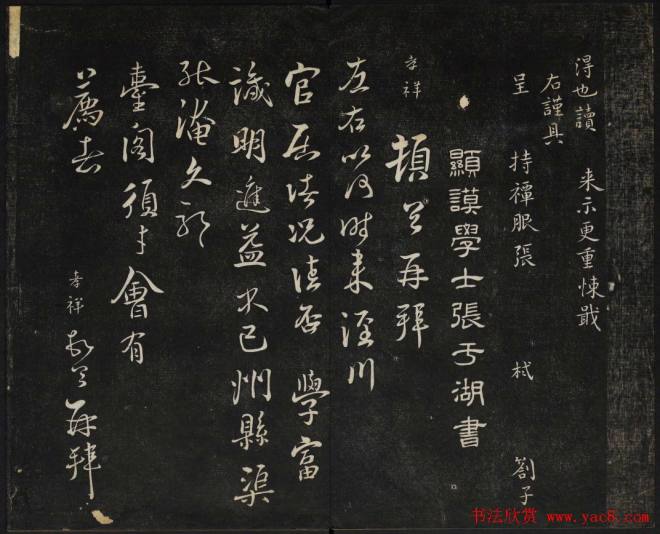 得也讀 来示更重悚戢
右謹具
呈 持禫服張 栻 劄子
顯謨學士張于湖書
孝祥 頓首再拜
左右以何时来涇川
官居情况佳否 學富
識明進益不已州縣渠
能淹久耶
臺閣須才會有
薦者 孝祥 頓首再拜
书法欣赏 www.yac8.com